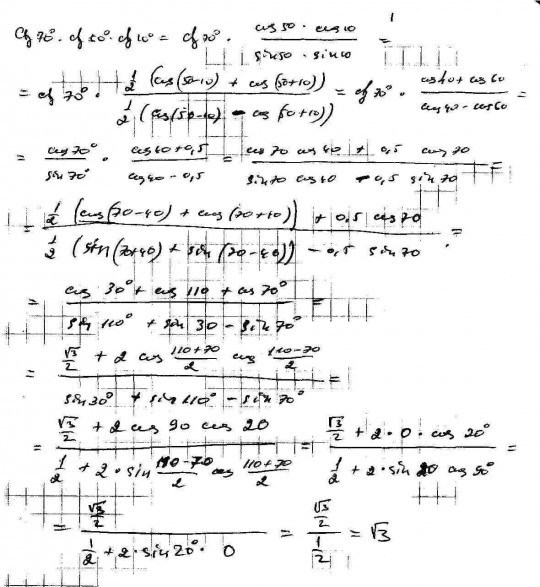 ctg 70° · ctg 50° · ctg 10° = ctg 70° · (cos 50 · cos 10)/(sin 50 · sin 10) =
= ctg 70° · (1/2 (cos(50-10) + cos(50+10)))/(1/2 (cos(50-10) - cos(50+10))) = ctg 70° · (cos 40 + cos 60)/(cos 40 - cos 60) =
= (cos 70°)/(sin 70°) · (cos 40 + 0,5)/(cos 40 - 0,5) = (cos 70 cos 40 + 0,5 cos 70)/(sin 70 cos 40 - 0,5 sin 70) =
= (1/2 (cos(70-40) + cos(70+40)) + 0,5 cos 70)/(1/2 (sin(70+40) + sin(70-40)) - 0,5 sin 70) =
= (cos 30° + cos 110 + cos 70°)/(sin 110° + sin 30 - sin 70°) =
= (√3/2 + 2 cos (110+70)/2 cos (110-70)/2)/(sin 30° + sin 110° - sin 70°) =
= (√3/2 + 2 cos 90 cos 20)/(1/2 + 2 · sin (110-70)/2 cos (110+70)/2) = (√3/2 + 2 · 0 · cos 20°)/(1/2 + 2 · sin 20 cos 90°) =
= (√3/2)/(1/2 + 2 · sin 20° · 0) = (√3/2)/(1/2) = √3